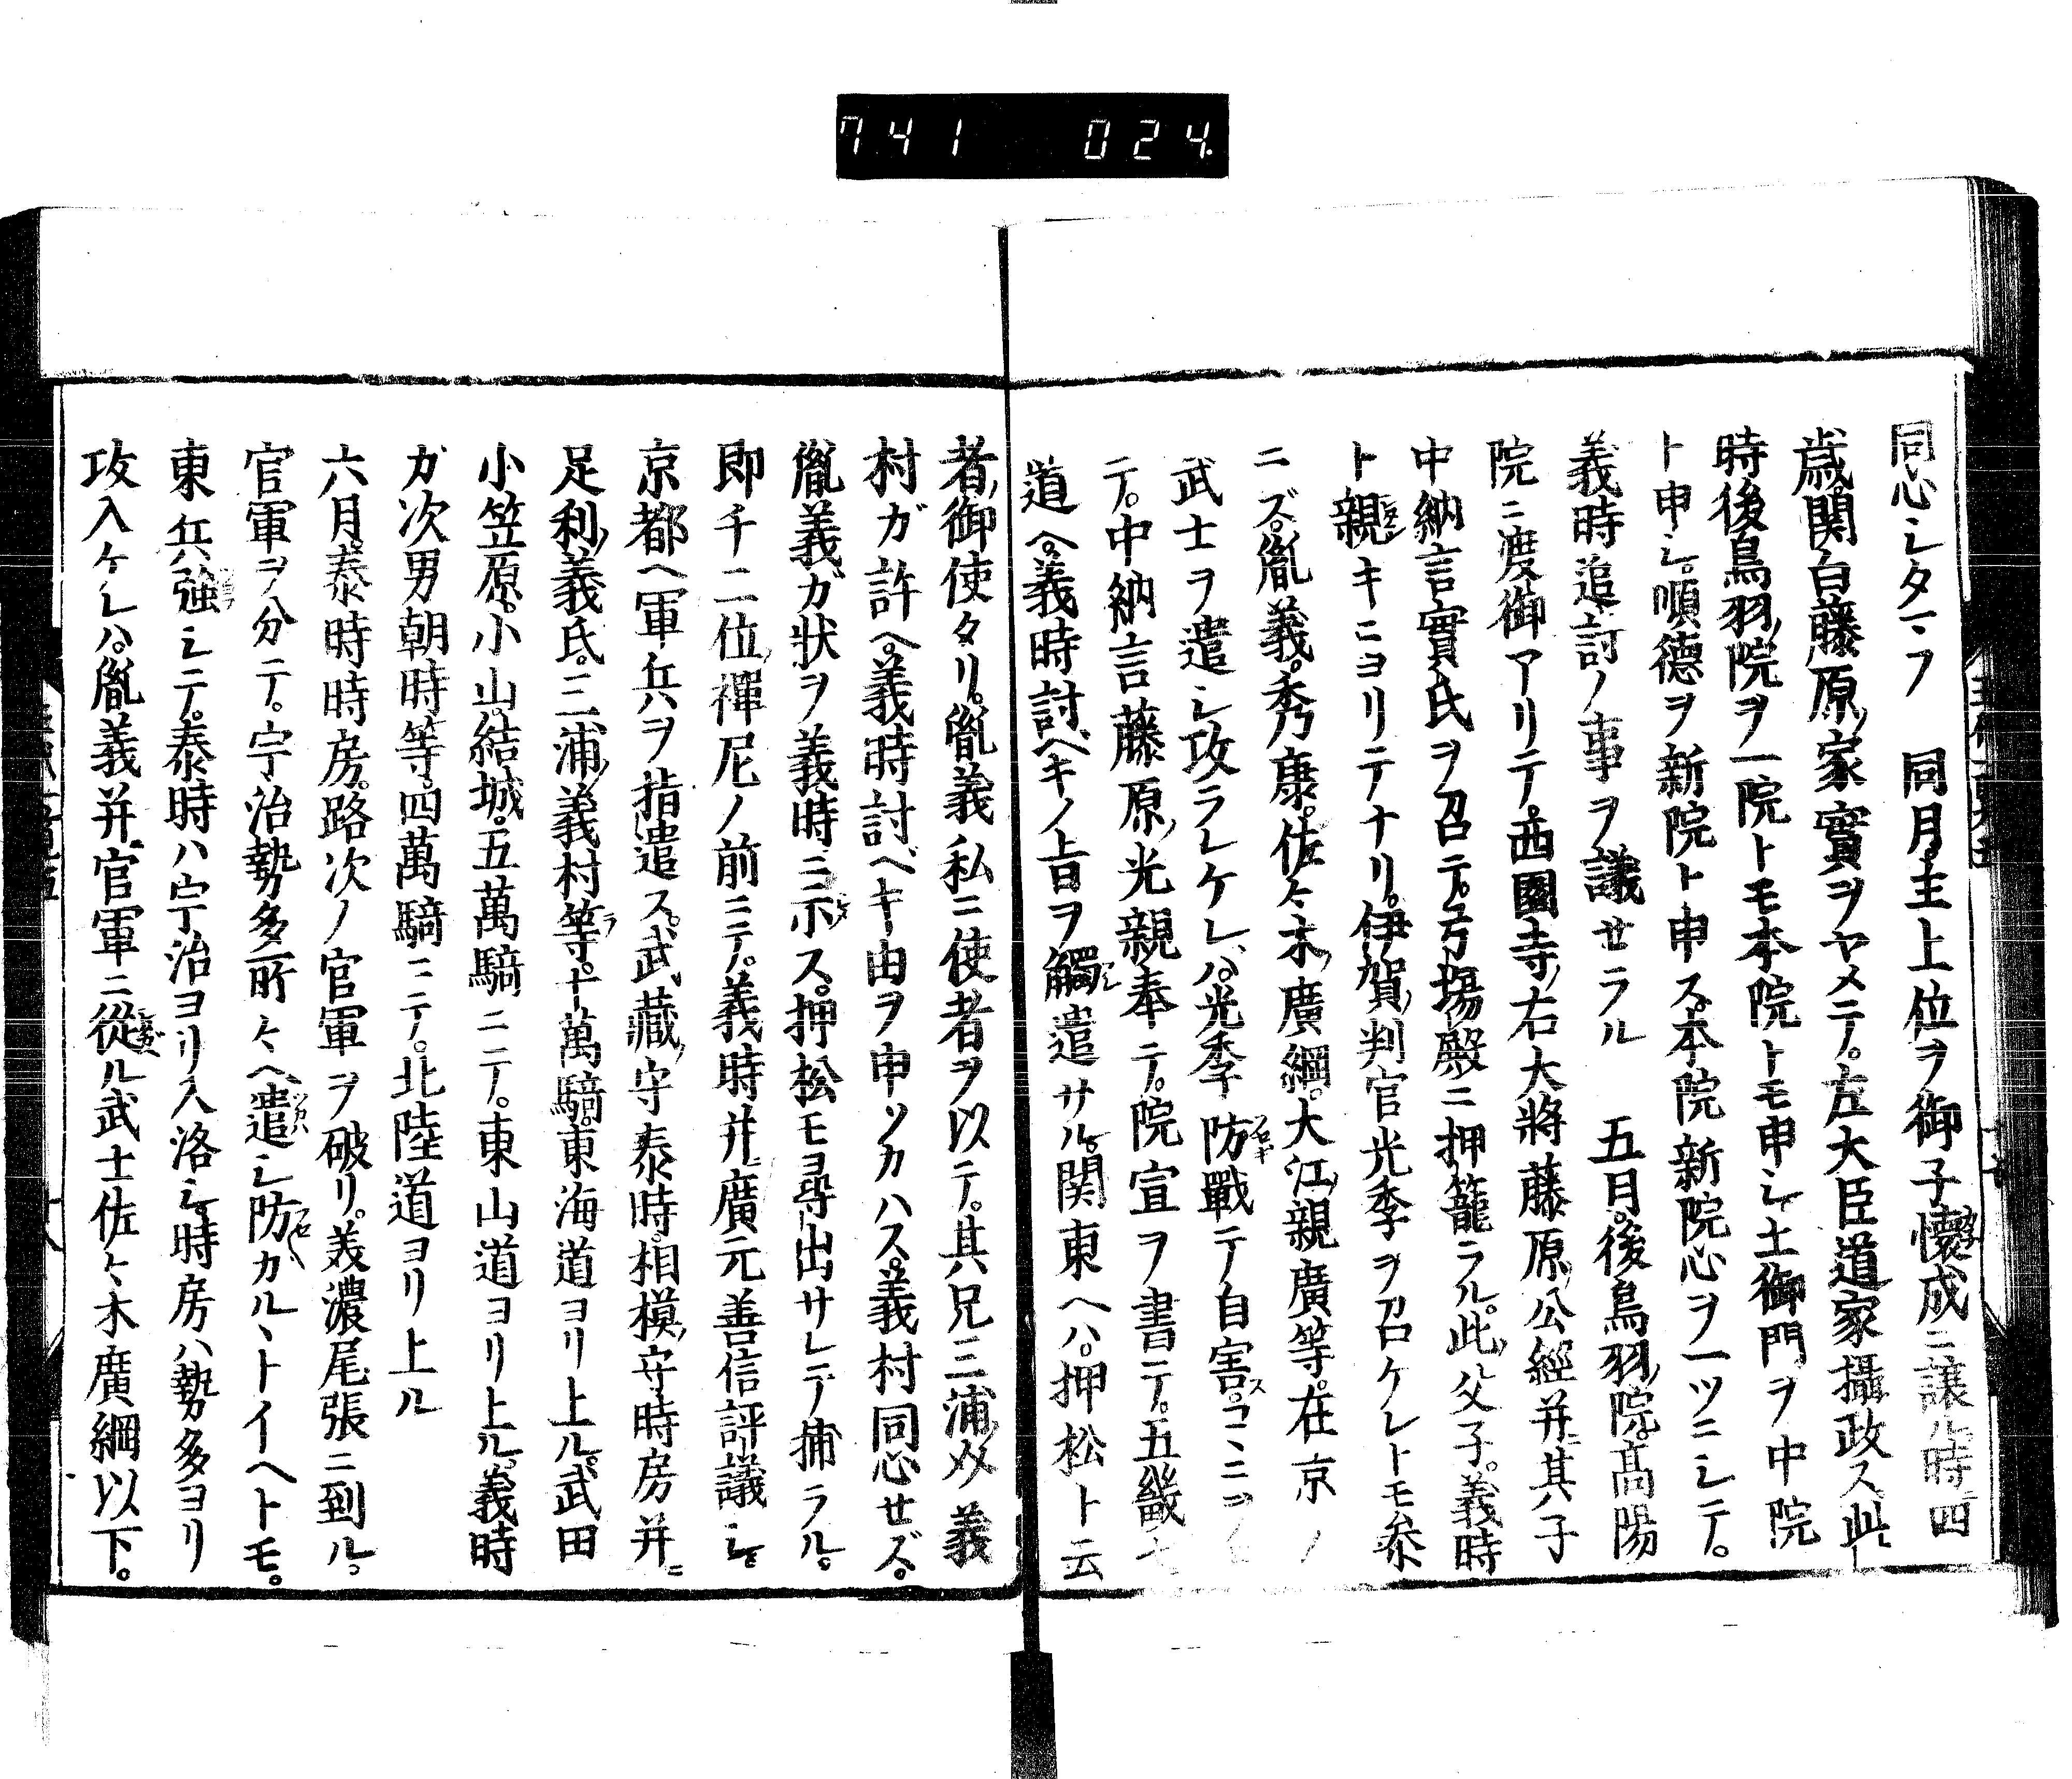 741 024
同心シタマフ 同月主上位ヲ御子懷成ニ讓ル時四
歳。関白藤原ノ家實ヲヤメテ。左大臣道家攝政ス此
時後鳥羽ノ院ヲ一院トモ本院トモ申シ土御門ヲ中院
ト申シ。順德ヲ新院ト申ス。本院新院心ヲ一ツニシテ。
義時追討ノ事ヲ議セラル 五月。後鳥羽ノ院。髙陽
院ニ渡御アリテ。西園寺ノ右大將藤原ノ公經并ニ其子
中納言實氏ヲ召テ。弓場殿ニ押籠ラル。此ノ父子。義時
ト親キニヨリテナリ。伊賀ノ判官光季ヲ召ケレトモ参
ニズ。胤義。秀康。佐々木ノ廣綱。大江ノ親廣等。在京ノ
武士ヲ遣シ攻ラレケレハ。光季防戰テ自害ス。コヽニヲイ
テ。中納言藤原ノ光親奉テ。院宣ヲ書テ。五畿七
道ヘ。義時討ベキノ旨ヲ觸遣サル。関東ヘハ。押松ト云
者ノ御使タリ。胤義私ニ使者ヲ以テ。其兄三浦ノ義
村ガ許ヘ。義時討ベキ由ヲ申ツカハス。義村同心せズ。
胤義ガ狀ヲ義時ニ示ス。押松モ尋出サレテ捕ラル。
即チ二位ノ禪尼ノ前ニテ。義時并ニ廣元善信評議シ。
京都ヘ軍兵ヲ指遣ス。武藏ノ守泰時。相模ノ守時房并ニ
足利ノ義氏。三浦ノ義村等。十萬騎。東海道ヨリ上ル。武田
小笠原。小山。結城。五萬騎ニテ。東山道ヨリ上ル。義時
ガ次男朝時等。四萬騎ニテ。北陸道ヨリ上ル
六月。泰時時房。路次ノ官軍ヲ破リ。美濃尾張ニ到ル。
官軍ヲ分テ。宇治勢多所々ヘ遣シ防カルヽトイヘトモ。
東兵強シテ。泰時ハ宇治ヨリ入洛シ。時房ハ勢多ヨリ
攻入ケレハ。胤義并官軍ニ從ル武士佐々木廣綱以下。